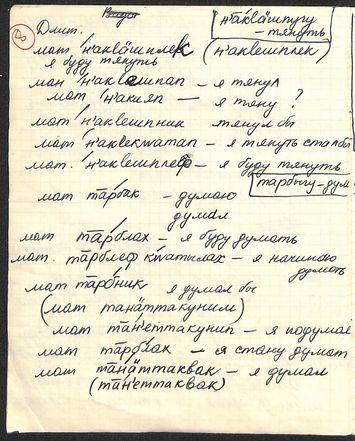 н'а́клӓшпугу
- тянуть
Длит.
мат н'аклӓшплек (н'аклешплек)
я буду тянуть
ман н'аклашпап - я тянул
мат н'акияп — я тяну ?
мат н'аклешпник тянул бы
мат н'аклекwатап - я тянуть стал бы
мат. н'аклешплеф - я буду тянуть
тарбыгу - дум
мат та̄рбак - думаю
думал
мат та̄рблах - я буду думать
мат. та̄рблеф кwатылах - я начинаю
думать
мат та̄рбник я думал бы
(мат танӓттакуним)
мат тан'еттакунип - я подумае
мат та̄рблак - я стану думат
мат танӓттаквак - я думал
(тан'еттаквак)